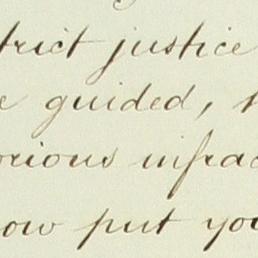 trict justice
e guided,
orious infrac
ow put you